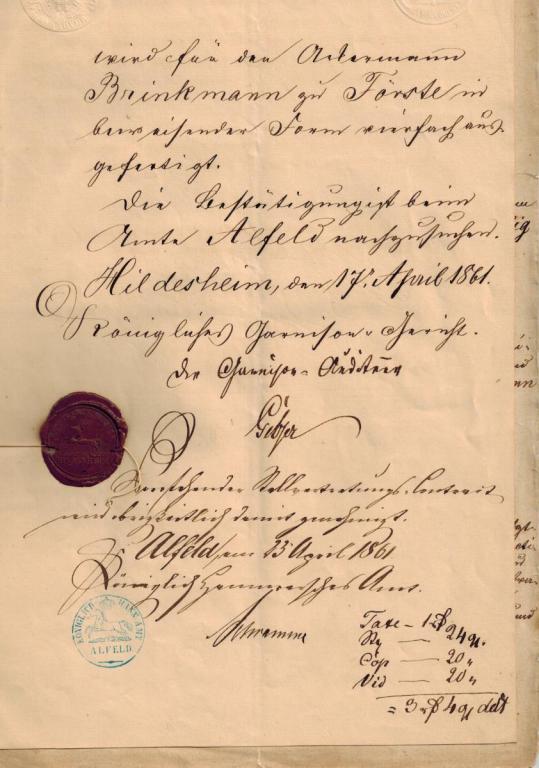 wird für den Ackermann
Brinkmann zu Förste in
beweisender Form vierfach aus-
gefertigt.
Die Bestätigung ist beim
Amte Alfeld nachzusuchen.
Hildesheim, den 17. April 1861.
Königliches Garnison-Gericht.
Der Garnison-Auditeur
Vorstehender Stellvertretungs-Contract
wird obrigkeitlich damit genehmigt.
Alfeld, am 23 April 1861
Königlich Hannoversches Amt.
KÖNIGLICH HANN. AMT
ALFELD.
Taxe - 1
24 g.
Cop — 20 "
Vid — 20 "
= 3 4 g ddt